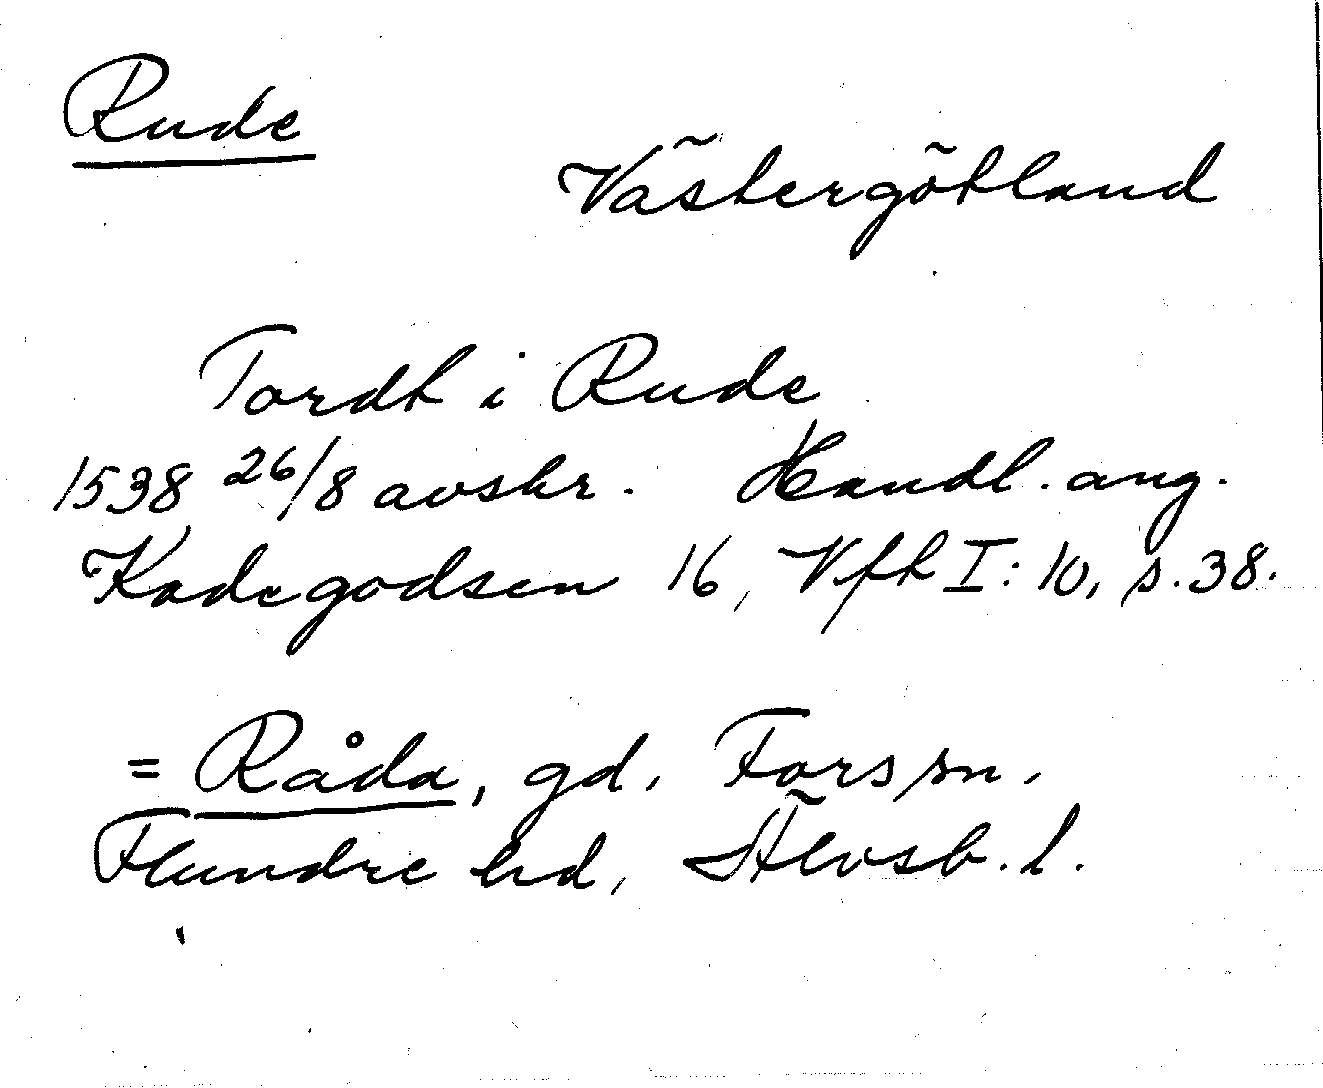 Rude
Västergötland
Tordt i Rude
1538 26/8 avskr. Handl. ang.
Kadegodsen 16, Vfh I: 10, s. 38.
= Råda, gd, Fors sn,
Flundre hd, Älvsb. l.